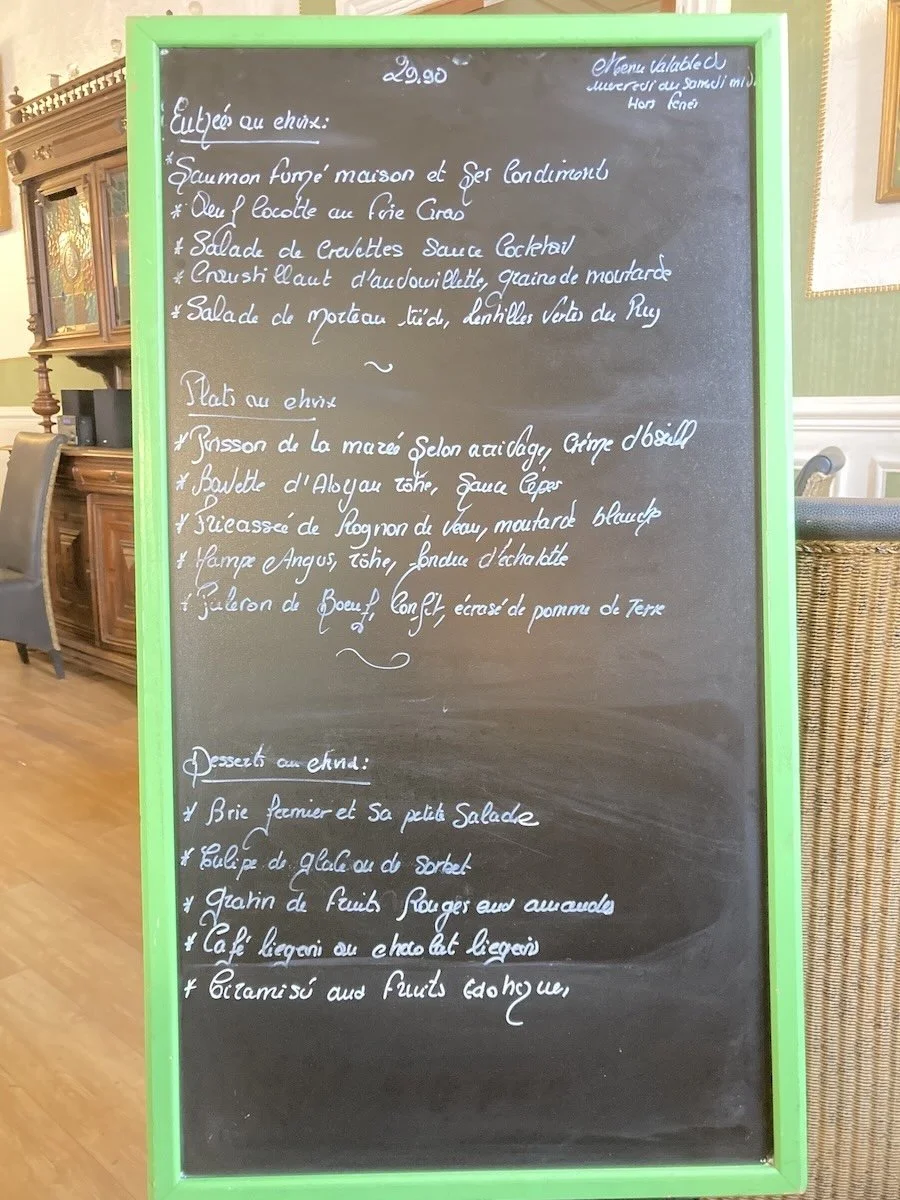 29.90
Menu valable du
mercredi au samedi midi
Hors feriés
Entrées au choix:
* Saumon fumé maison et ses Condiments
* Oeuf Cocotte au Foie Gras
* Salade de Crevettes Sauce Cocktail
* Croustillant d'andouillette, graine de moutarde
* Salade de morteau tiéde, lentilles vertes du Puy
Plats au choix
* Poisson de la marée selon arrivage, Crème d'oseille
* Bavette d'Aloyau rôtie, Sauce Cépes
* Fricassée de Rognon de Veau, moutarde blanche
* Hampe Angus, rôtie, fondue d'échalotte
* Paleron de Boeuf, Confit, écrasé de pomme de Terre
Desserts au choix:
* Brie fermier et sa petite Salade
* Tulipe de glace ou de sorbet
* gratin de fruits Rouges aux amandes
* Café liegeois ou chocolat liegeois
* Tiramisú aux fruits Exotiques